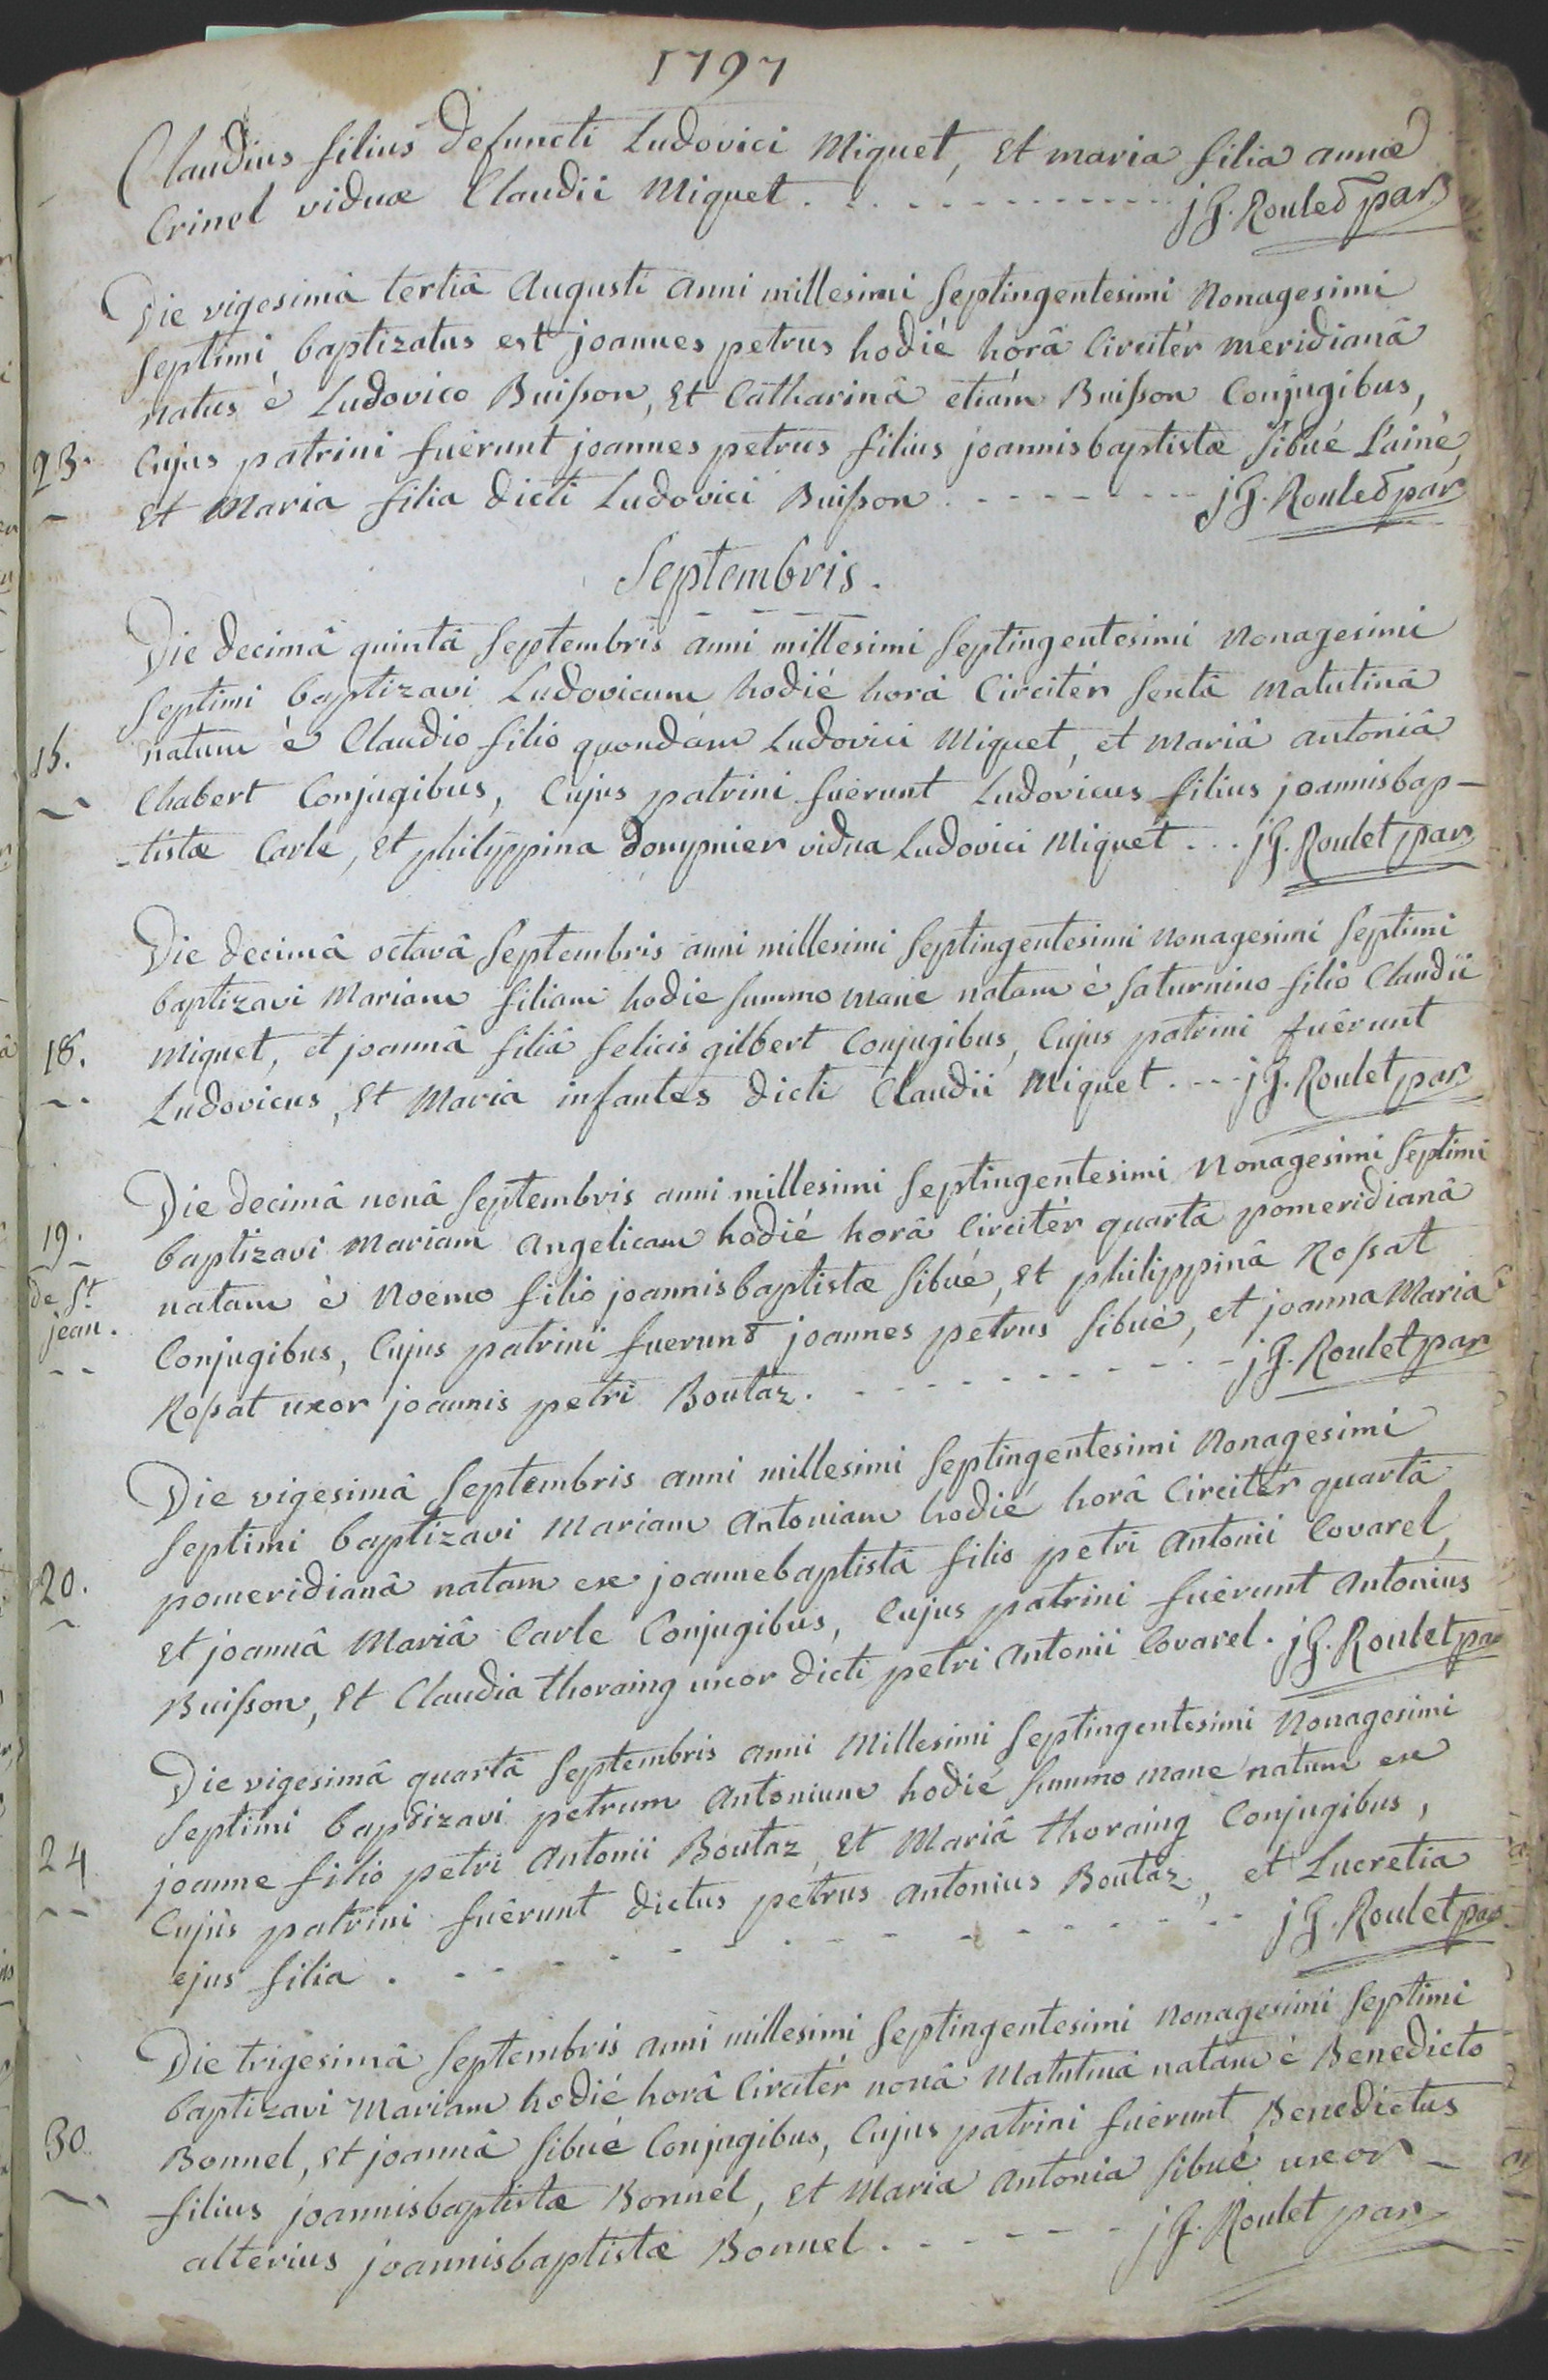 1797
Claudius filius defuncti Ludovici Miquet, Et maria filia annæ
Crinel viduæ Claudii Miquet. jG. Roulet par.
Die vigesimâ tertiâ Augusti anni millesimi Septingentesimi Nonagesimi
Septimi baptizatus est joannes petrus hodié horâ Circitér meridianâ
natus è Ludovico Buisson, Et Catharinâ etiám Buisson Conjugibus,
23. Cujus patrini fuêrunt joannes petrus filius joannisbaptistæ Sibué L'ainé,
Et Maria filia dicti Ludovici Buisson jG. Roulet par
Septembris.
Die decimâ quintâ Septembris anni millesimi Septingentesimi Nonagesimi
Septimi baptizavi Ludovicum hodié horâ Circitér Sextâ Matutinâ
15. natum è Claudio filio quondám Ludovici Miquet, et mariâ antoniâ
Chabert Conjugibus, Cujus patrini fuêrunt Ludovicus filius joannisbap-
-tistæ Carle, Et philippina vidua Ludovici Miquet... jG. Roulet par.
Die decimâ octavâ Septembris anni millesimi Septingentesimi Nonagesimi Septimi
baptizavi Mariam filiam hodie summo mane natam è Saturnino filio Claudii
18. Miquet, et joannâ filiâ felicis gilbert Conjugibus, Cujus patrini fuêrunt
Ludovicus, Et Maria infantes dicti Claudii Miquet. jG. Roulet par
Die decimâ nonâ Septembris anni millesimi Septingentesimi Nonagesimi Septimi
19. baptizavi Mariam Angelicam hodié horâ Circitér quartâ pomeridianâ
de St jean. natam è Noemo filio joannisbaptistæ Sibué, Et philippinâ Rossat
Conjugibus, Cujus patrini fuerunt joannes petrus Sibué, et joanna Maria
Rossat uxor joannis petri Boutaz. jG. Roulet par
Die vigesimâ Septembris anni millesimi Septingentesimi Nonagesimi
Septimi baptizavi Mariam Antoniam hodié horâ Circitér quartâ
20. pomeridianâ natam ex joannebaptistâ filio petri Antonii Covarel,
Et joannâ Mariâ Carle Conjugibus, Cujus patrini fuêrunt Antonius
Buisson, Et Claudia thoraing uxor dicti petri Antonii Covarel. jG. Roulet par
Die vigesimâ quartâ Septembris anni Millesimi Septingentesimi Nonagesimi
Septimi baptizavi petrum Antonium hodié Summo mane natum ex
24 joanne filio petri Antonii Boutaz, Et Mariâ thoraing Conjugibus,
Cujus patrini fuêrunt dictus petrus Antonius Boutaz, et Lucretia
ejus filia. jG. Roulet par
Die trigesimâ Septembris anni millesimi Septingentesimi Nonagesimi Septimi
baptizavi Mariam hodié horâ Circitér nonâ Matutinâ natam è Benedicto
30. Bonnel, et joannâ Sibué Conjugibus, Cujus patrini fuêrunt Benedictus
filius joannisbaptistæ Bonnel, Et Maria Antonia Sibué uxor
alterius joannisbaptistæ Bonnel. jG. Roulet par